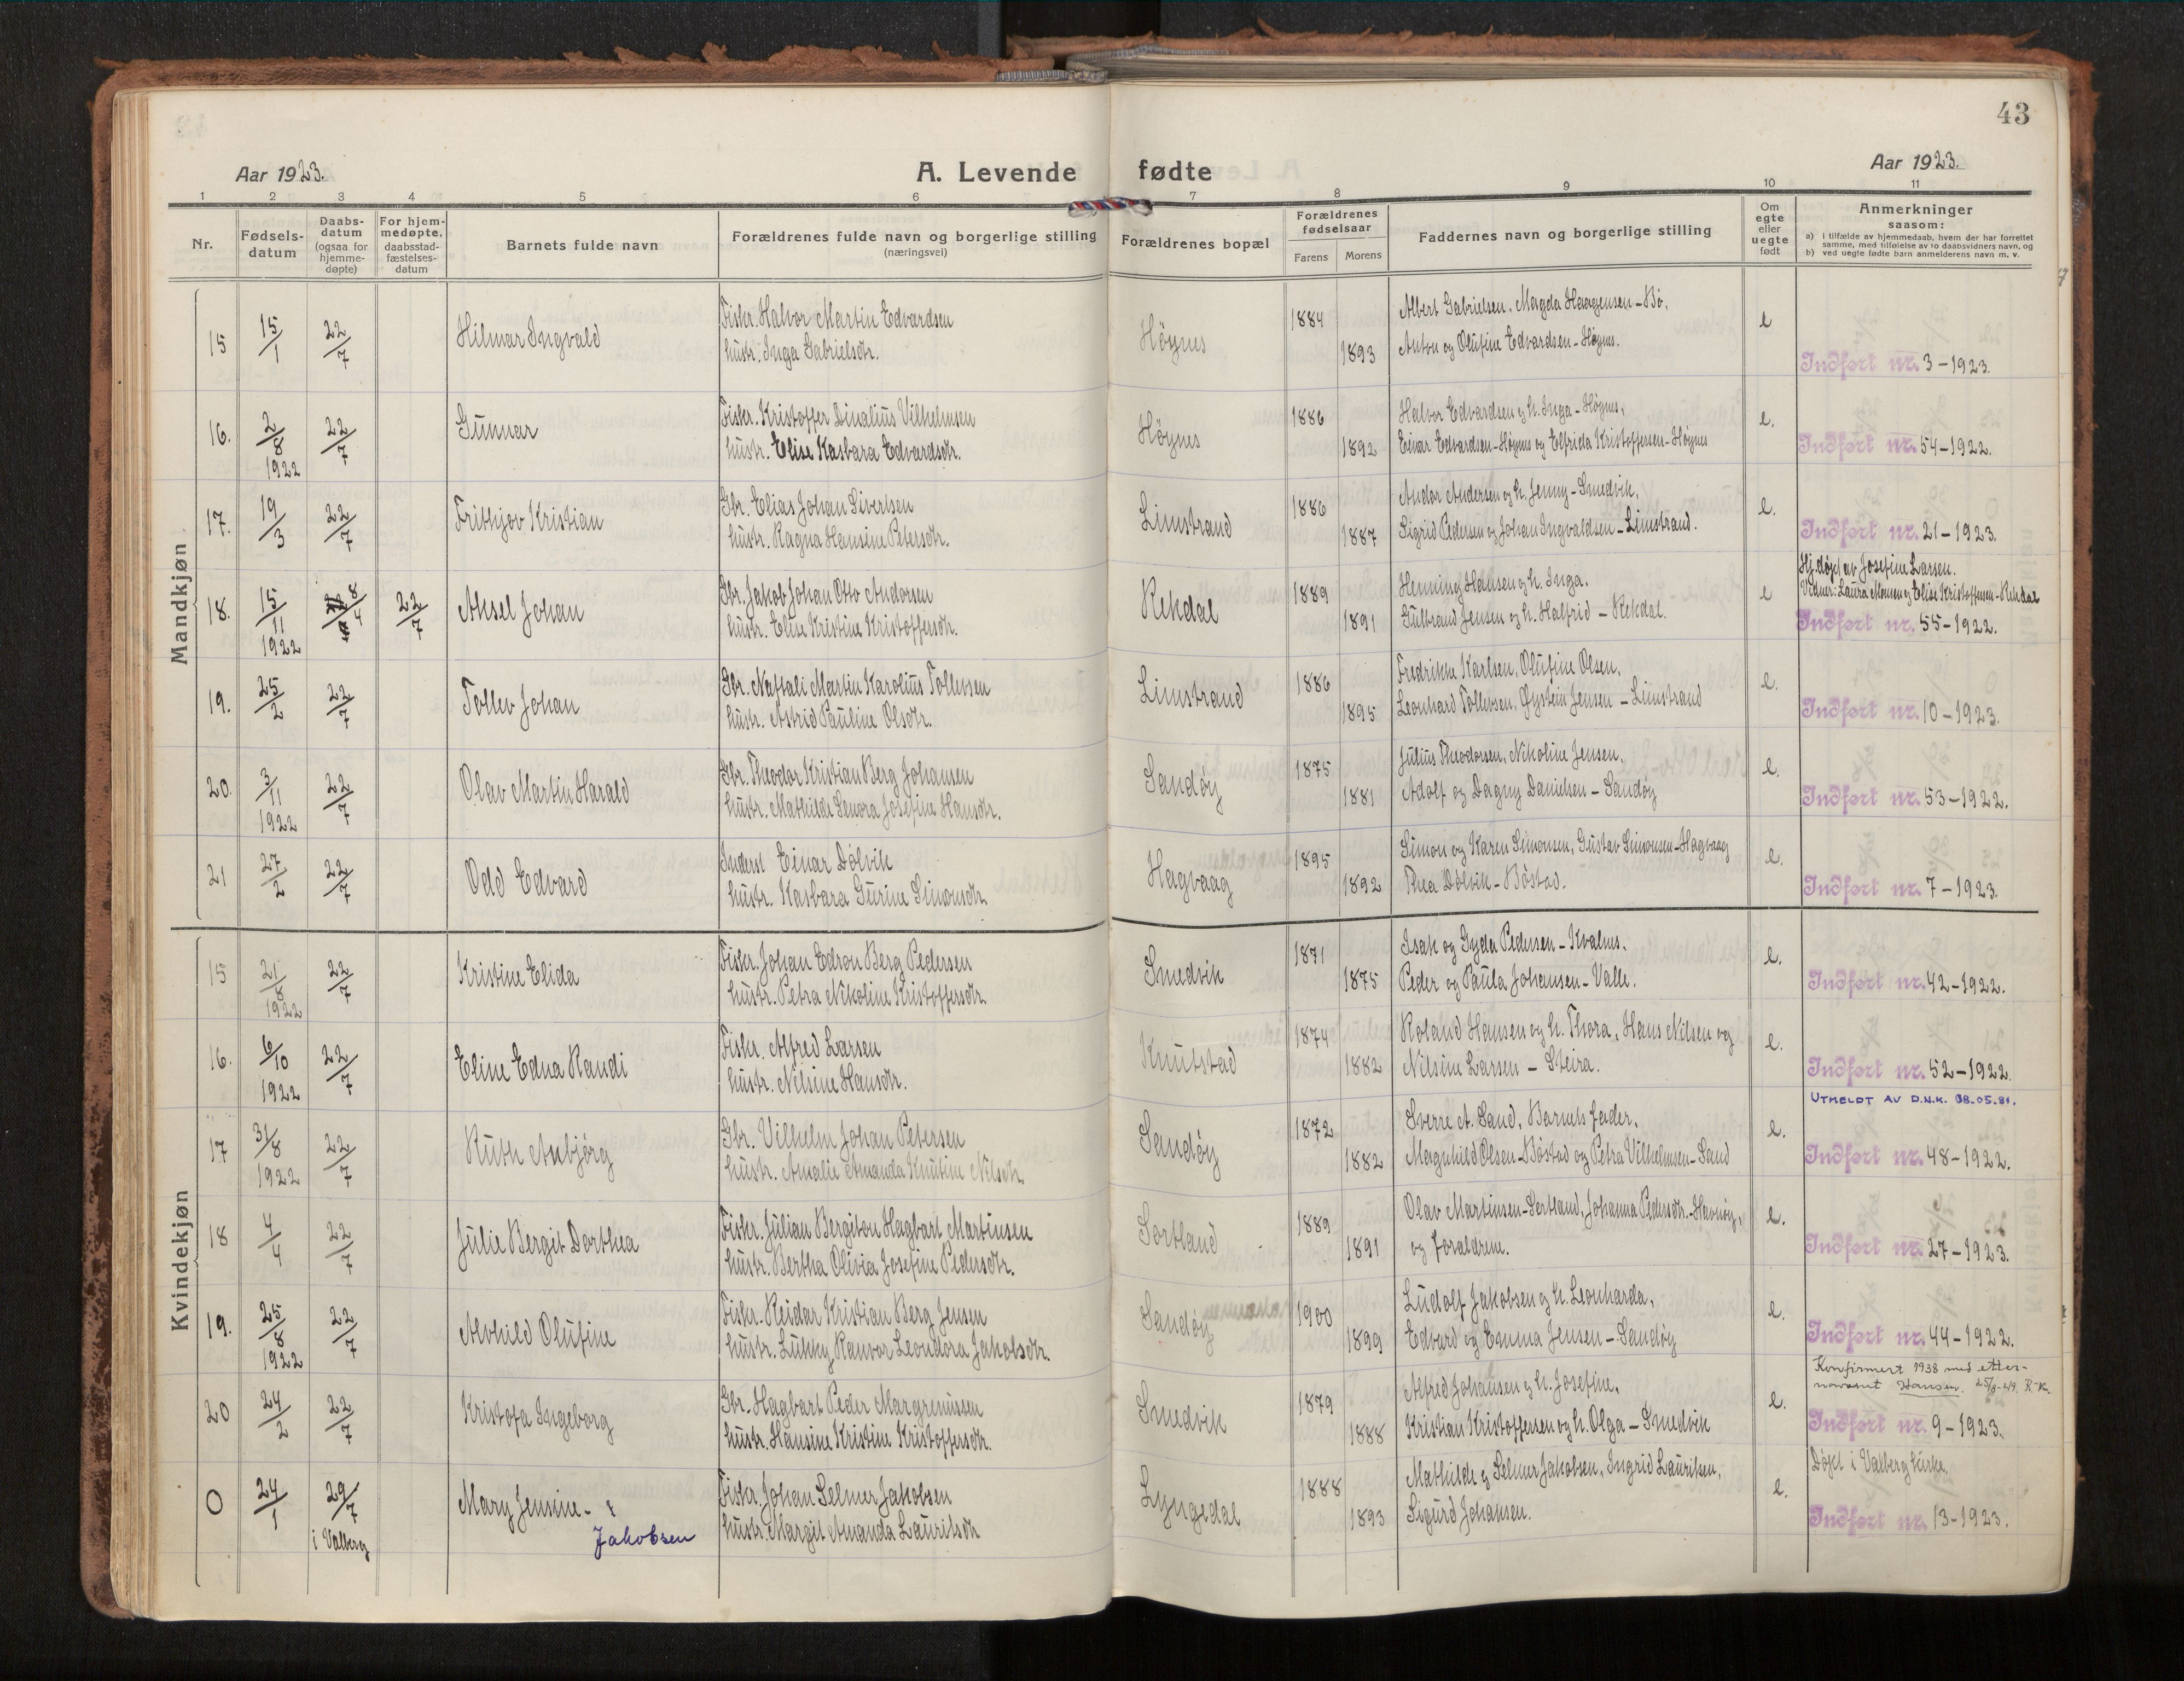 43
Aar 1923.
A. Levende fødte
Aar 1923.
1 2 3 4 5 6 7 8 9 10 11
Nr.
Fødsels-
datum
Daabs-
datum
(ogsaa for
hjemme-
døpte)
For hjem-
medøpte,
daabsstad-
fæstelses-
datum
Barnets fulde navn
Forældrenes fulde navn og borgerlige stilling
(næringsvei)
Forældrenes bopæl
Forældrenes
fødselsaar
Farens Morens
Faddernes navn og borgerlige stilling
Om
egte
eller
uegte
født
Anmerkninger
saasom:
a) i tilfælde av hjemmedaab, hvem der har forrettet
samme, med tilføielse av to daabsvidners navn, og
b) ved uegte fødte barn anmelderens navn m. v.
Mandkjøn
15 15/1 22/7 Hilmar Ingvald
Fisker. Halvor Martin Edvardsen
hustr. Inga Gabrielsdtr.
Høynes 1884 1893
Albert Gabrielsen, Magda Haagensen - Bø,
Anton og Olufine Edvardsen - Høynes.
e
Indført nr. 3 - 1923.
16. 2/8 1922 22/7 Gunnar
Fisker. Kristoffer Dinalius Vilhelmsen
hustr. Elise Kasbara Edvardsdtr.
Høynes 1886 1892
Halvor Edvardsen og h. Inga - Høynes,
Einar Edvardsen - Høynes og Elfrida Kristoffersen - Høynes
e.
Indført nr. 54 - 1922.
17. 19/3 22/7 Frithjov Kristian
Gbr. Elias Johan Sivertsen
hustr. Ragna Hansine Petersdtr.
Limstrand 1886 1887
Andor Andersen og h. Jenny - Smedvik,
Sigrid Pedersen og Johan Ingvaldsen - Limstrand.
e.
Indført nr. 21 - 1923.
18. 15/11 1922 8/4 22/7 Aksel Johan
Gbr. Jakob Johan Otto Andorsen
hustr. Elise Kristine Kristoffersdtr.
Rekdal 1889 1891
Henning Hansen og h. Inga.
Gulbrand Jensen og h. Halfrid - Rekdal.
e
Hj. døpt av Josefine Larsen.
Vidner: Laura Monsen og Elise Kristoffersen - Rekdal
Indført nr. 55 - 1922.
19. 25/2 22/7 Tollev Johan
Gbr. Naftali Martin Karolius Tollevsen
hustr. Astrid Pauline Olsdtr.
Limstrand 1886 1895
Fredrikke Karlsen, Olufine Olsen,
Leonhard Tollevsen, Øystein Jensen - Limstrand
e.
Indført nr. 10 - 1923.
20. 3/11 1922 22/7 Olav Martin Harald
Gbr. Theodor Kristian Berg Johansen
hustr. Mathilde Senora Josefine Hansdtr.
Sandøy 1875 1881
Julius Theodorsen, Nikoline Jensen,
Adolf og Dagny Danielsen - Sandøy
e.
Indført nr. 53 - 1922.
21 27/2 22/7 Odd Edvard
Inderst Einar Dølvik
hustr. Kasbara Gurine Simonsdtr.
Hagvaag 1895 1892
Simon og Karen Simonsen, Gustav Simonsen - Hagvaag
Thea Dølvik - Bøstad.
e.
Indført nr. 7 - 1923.
Kvindekjøn
15 21/8 1922 22/7 Kristine Elida
Fisker. Johan Edson Berg Pedersen
hustr. Petra Nikoline Kristoffersdtr.
Smedvik 1871 1875
Isak og Gyda Pedersen - Kvalnes.
Peder og Paula Johansen - Valle.
e.
Indført nr. 42 - 1922.
16. 6/10 1922 22/7 Eline Edna Randi
Fisker. Alfred Larsen
hustr. Nilsine Hansdtr.
Knutstad 1874 1882
Roland Hansen og h. Thora, Hans Nilsen og
Nilsine Larsen - Steira.
e.
Indført nr. 52 - 1922.
17 31/8 1922 22/7 Ruth Anbjørg
Gbr. Vilhelm Johan Petersen
hustr. Amalie Amanda Knutine Nilsdtr.
Sandøy 1872 1882
Sverre A. Sand, Barnets fader,
Magnhild Olsen - Bøstad og Petra Vilhelmsen - Sand
e.
UTMELDT AV D.N.K. 08.05.81.
Indført nr. 48 - 1922.
18 4/4 22/7 Julie Bergit Dorthea
Fisker. Julian Bergiton Hagbart Martinsen
hustr. Bertha Olivia Josefine Pedersdtr.
Sortland 1889 1891
Olav Martinsen - Sortland, Johanna Pedersdtr. - Havnøy,
og Foraldrene.
e.
Indført nr. 27 - 1923.
19. 25/8 1922 22/7 Alvhild Olufine
Fisker. Reidar Kristian Berg Jensen
hustr. Lukky Ranvor Leondora Jakobsdtr.
Sandøy 1900 1899
Ludolf Jakobsen og h. Leonharda,
Edvard og Emma Jensen - Sandøy
e.
Indført nr. 44 - 1922.
20 24/2 22/7 Kristofa Ingeborg
Gbr. Hagbart Peder Margreniussen
hustr. Hansine Kristine Kristoffersdtr.
Smedvik 1879 1888
Alfred Johansen og h. Josefine,
Kristian Kristoffersen og h. Olga - Smedvik
e.
Konfirmert 1938 med etter-
navnet Hansen. 25/8-49. R-K.
Indført nr. 9 - 1923.
0 24/1 29/7 i Valberg Mary Jensine -
Jakobsen
Fisker. Johan Selmer Jakobsen
hustr. Margit Amanda Lauritsdtr
Lyngedal 1888 1893
Mathilde og Selmer Jakobsen, Ingrid Lauritsen,
Sigurd Johansen.
e.
Døpt i Valberg kirke.
Indført nr. 13 - 1923.